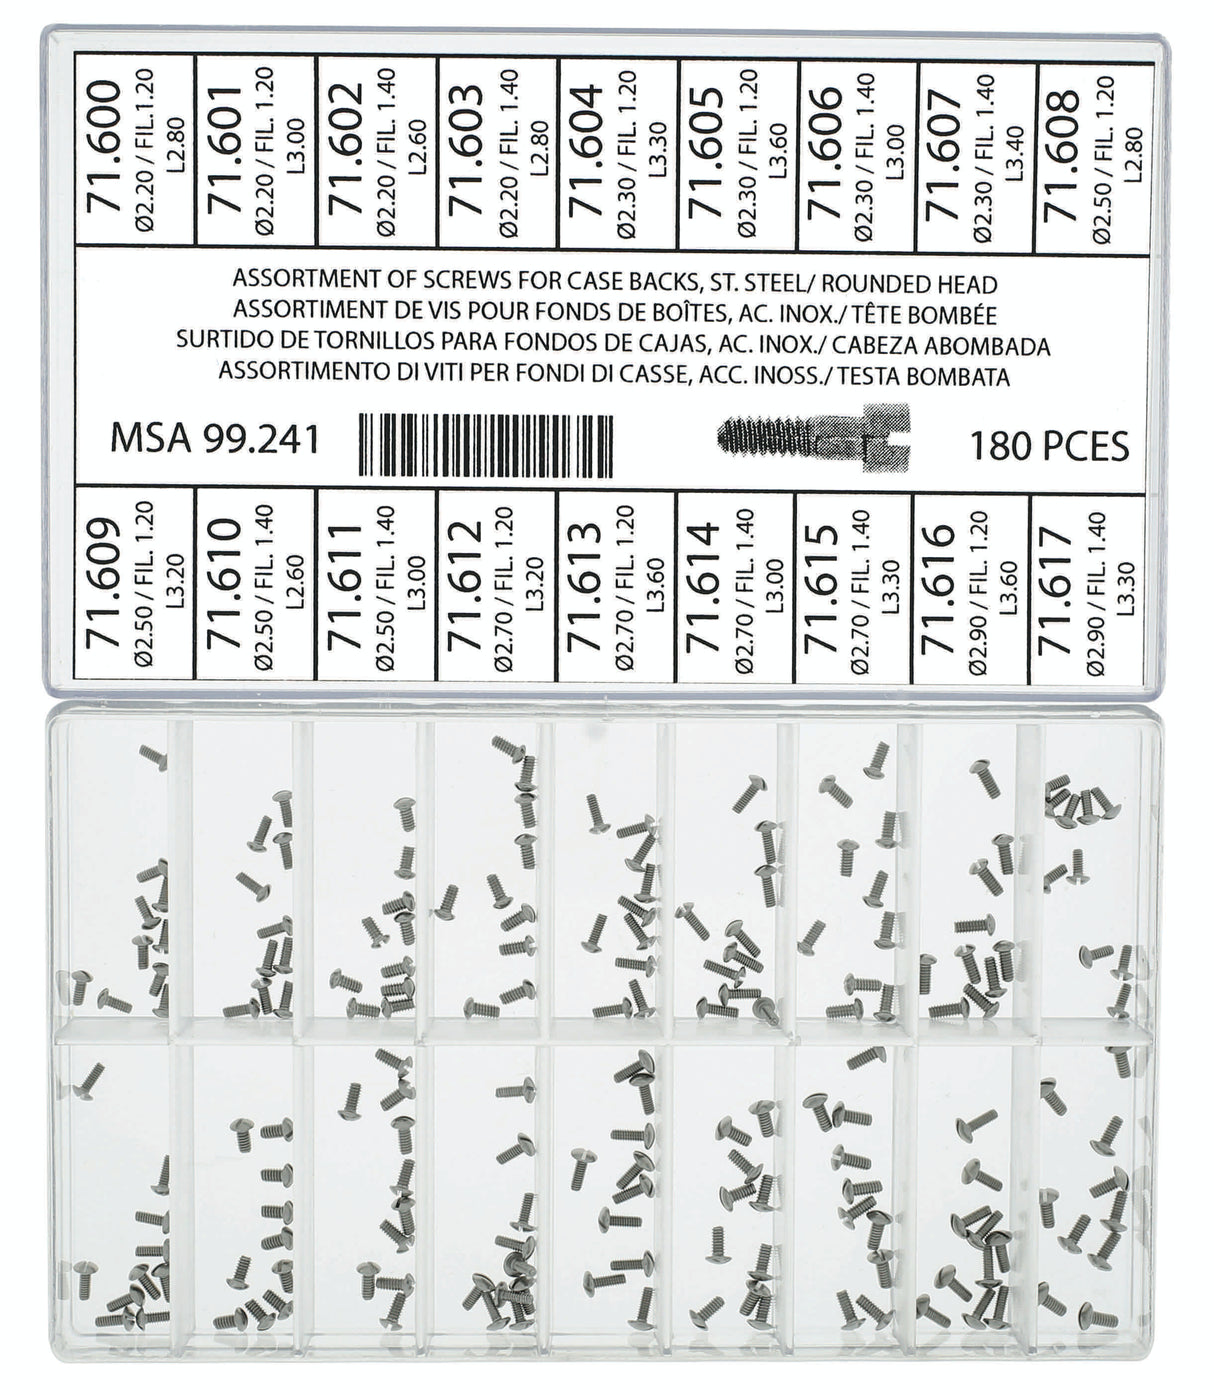 71.600
Ø2.20 / FIL. 1.20
L2.80
71.601
Ø2.20 / FIL. 1.20
L3.00
71.602
Ø2.20 / FIL. 1.40
L2.60
71.603
Ø2.20 / FIL. 1.40
L2.80
71.604
Ø2.30 / FIL. 1.20
L3.30
71.605
Ø2.30 / FIL. 1.20
L3.60
71.606
Ø2.30 / FIL. 1.40
L3.00
71.607
Ø2.30 / FIL. 1.40
L3.40
71.608
Ø2.50 / FIL. 1.20
L2.80
ASSORTMENT OF SCREWS FOR CASE BACKS, ST. STEEL/ ROUNDED HEAD
ASSORTIMENT DE VIS POUR FONDS DE BOÎTES, AC. INOX./ TÊTE BOMBÉE
SURTIDO DE TORNILLOS PARA FONDOS DE CAJAS, AC. INOX./ CABEZA ABOMBADA
ASSORTIMENTO DI VITI PER FONDI DI CASSE, ACC. INOSS./ TESTA BOMBATA
MSA 99.241
180 PCES
71.609
Ø2.50 / FIL. 1.20
L3.20
71.610
Ø2.50 / FIL. 1.40
L2.60
71.611
Ø2.50 / FIL. 1.40
L3.00
71.612
Ø2.70 / FIL. 1.20
L3.20
71.613
Ø2.70 / FIL. 1.20
L3.60
71.614
Ø2.70 / FIL. 1.40
L3.00
71.615
Ø2.70 / FIL. 1.40
L3.30
71.616
Ø2.90 / FIL. 1.20
L3.60
71.617
Ø2.90 / FIL. 1.40
L3.30